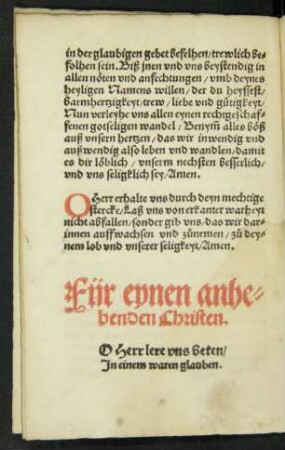 in der glaubigen gebet befelhen/trewlich be-
folhen sein. Biß jnen vnd vns beystendig in
allen nöten vnd anfechtungen/vmb deynes
heyligen Namens willen/der du heyssest/
barmhertzigkeyt/trew/liebe vnd gütigkeyt/
Nun verleyhe vns allen eynen rechtgeschaf-
fenen gotseligen wandel/Benym̃ alles böß
auß vnsern hertzen/das wir inwendig vnd
außwendig also leben vnd wandlen/damit
es dir löblich/vnserm nechsten besserlich/
vnd vns seligklich sey/Amen.
O Herr erhalte vns durch deyn mechtige
stercke/Laß vns von erkanter warheyt
nicht abfallen/sonder gib vns/das wir dar-
innen auffwachsen vnd zůnemen/zů dey-
nem lob vnd vnserer seligkeyt/Amen.
Für eynen anhe-
benden Christen.
O Herr lere vns beten/
In einem waren glauben.